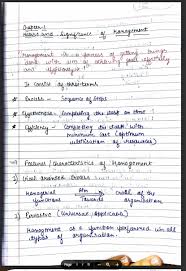 Chapter-1
Nature and Significance of Management
Management is a process of getting things
done with aim of achieving goal effectively
and efficiently.
It consists of three terms
* Process - Sequence of Steps
* Effectiveness - Completing the task on time
* Efficiency - Completing the task with
minimum cost (optimum
utilisation of resources)
Features / Characteristics of Management
1) Goal oriented Process
Managerial Aim of all the
functions Towards organisation
2) Pervasive (Universal applicable)
Management is a function performed in all
types of organisation.